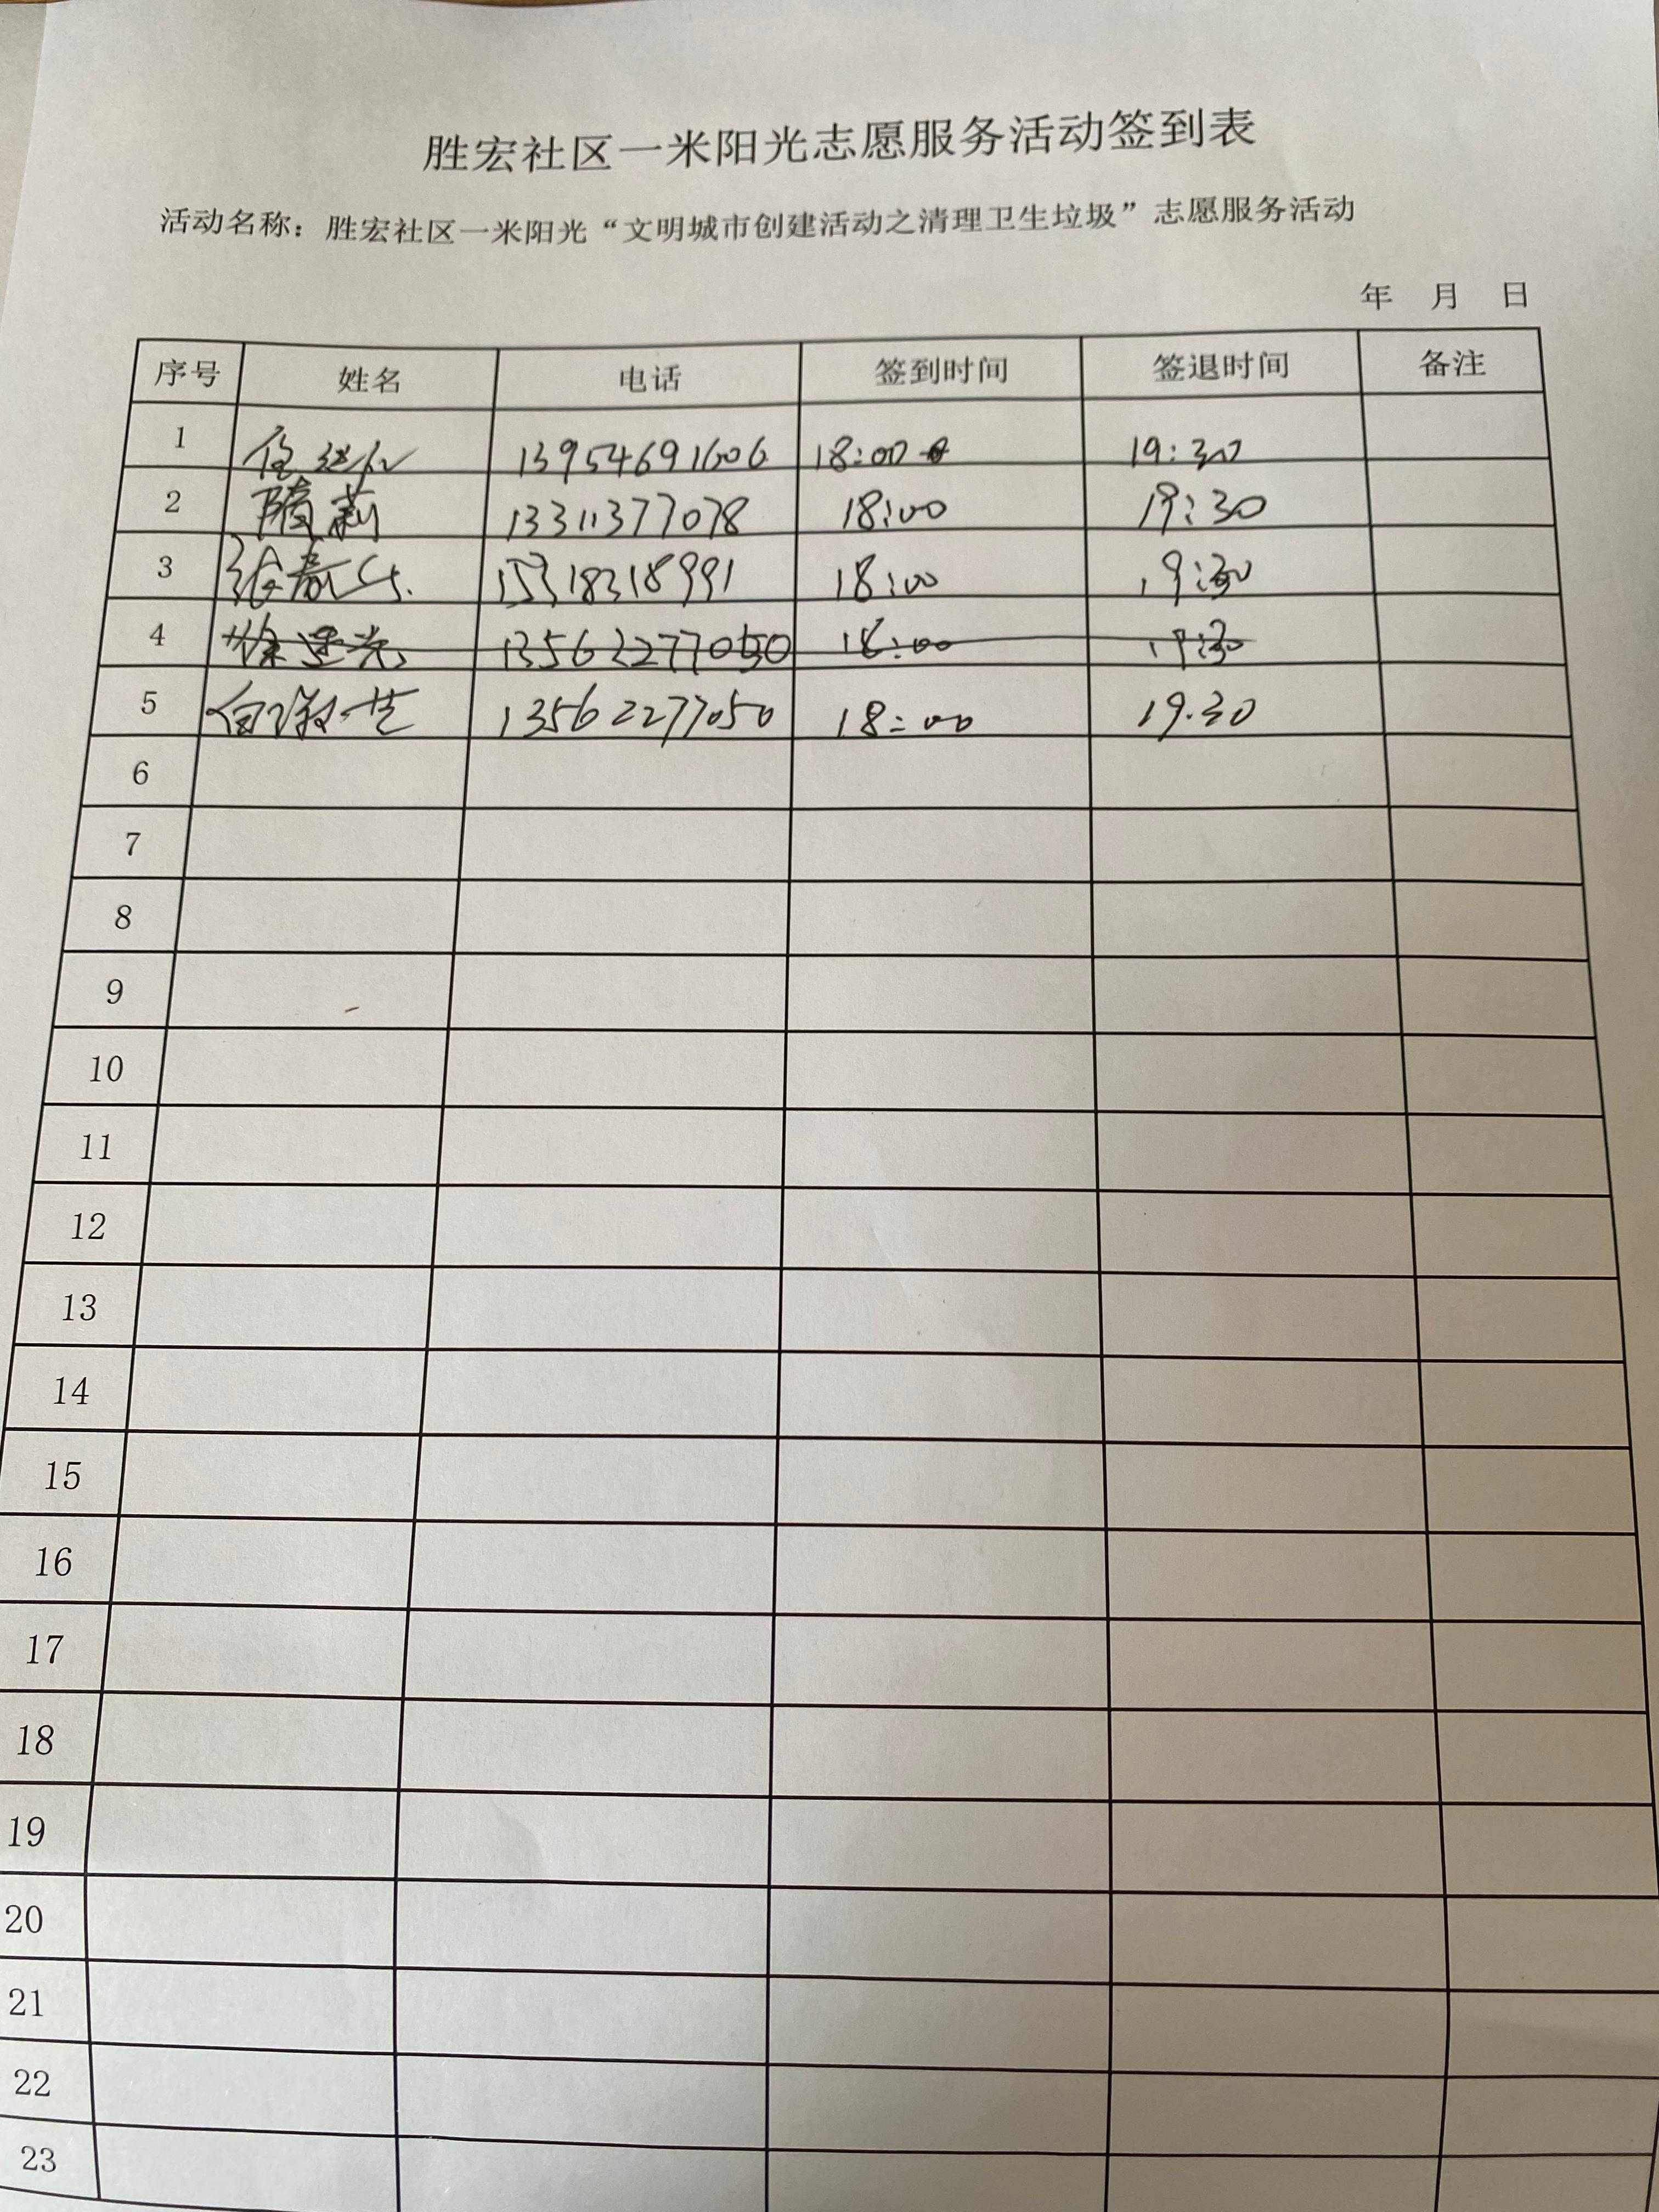 胜宏社区一米阳光志愿服务活动签到表
活动名称：胜宏社区一米阳光“文明城市创建活动之清理卫生垃圾”志愿服务活动
年 月 日
序号 姓名 电话 签到时间 签退时间 备注
1 13954691606 18:00 19:30
2 隋莉 13311377078 18:00 19:30
3 15318318991 18:00 19:30
4 13562277050 18:00 19:30
5 13562277050 18:00 19.30
6
7
8
9
10
11
12
13
14
15
16
17
18
19
20
21
22
23